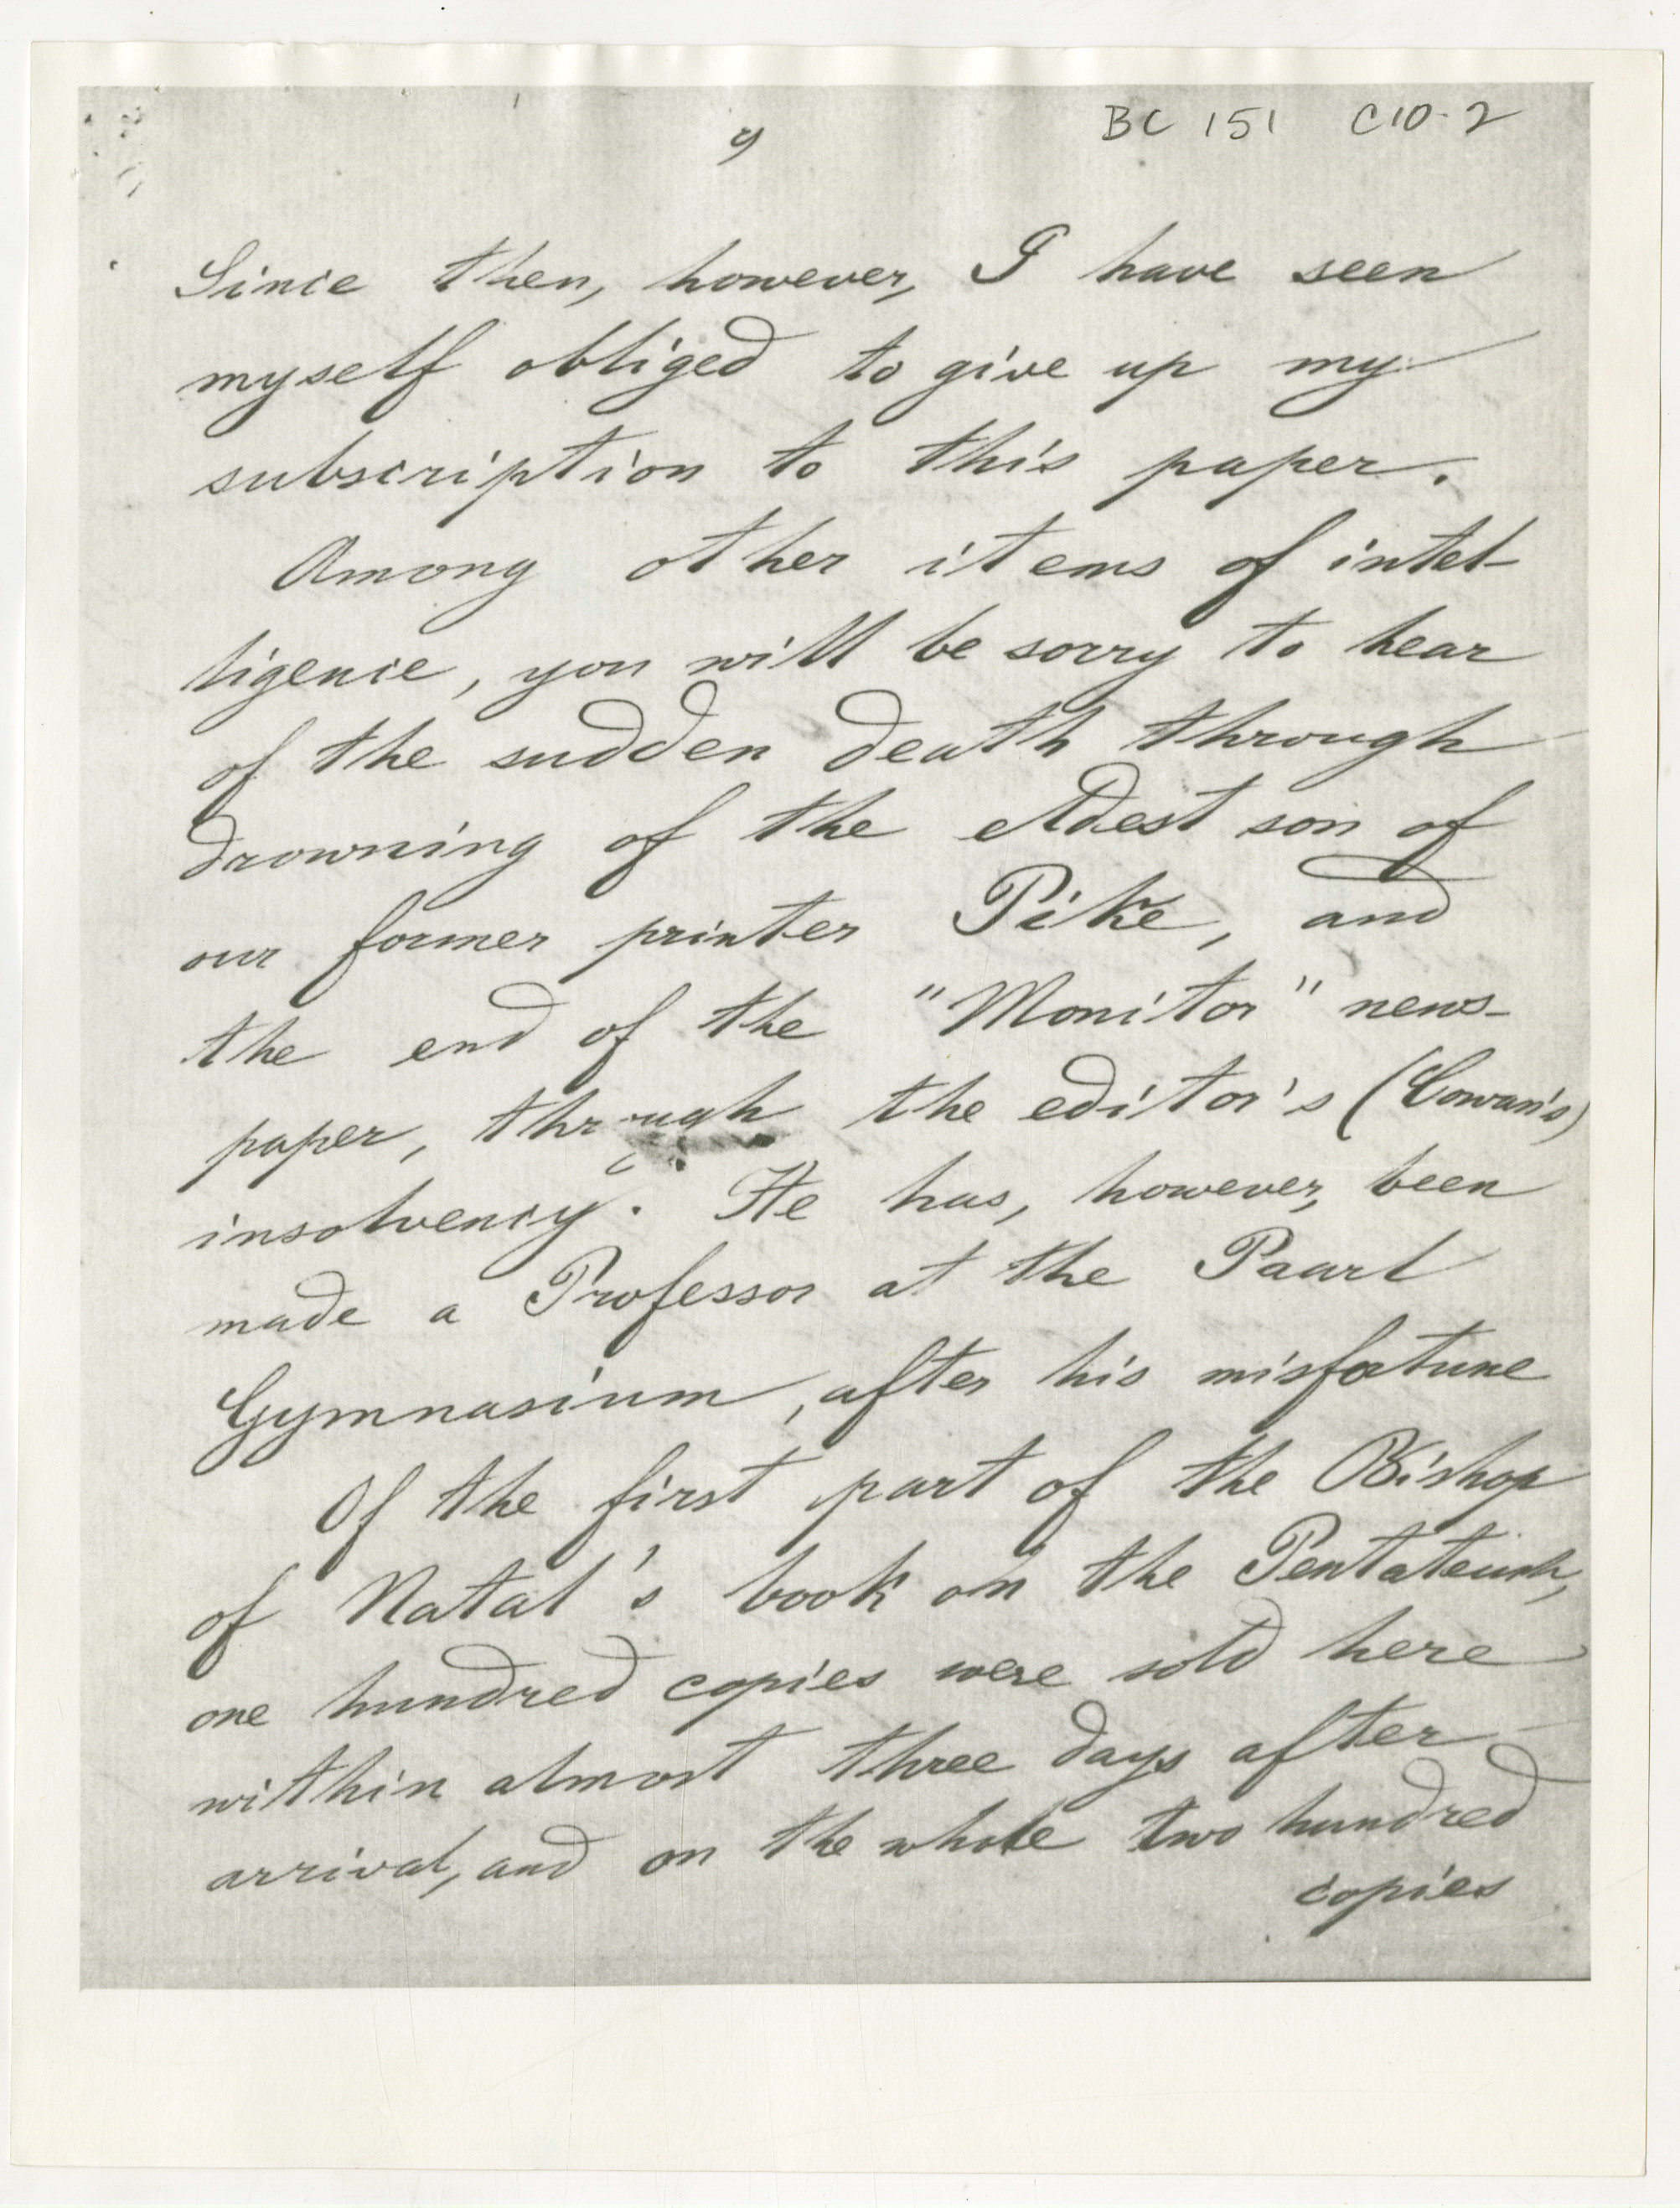 9
BC 151 C10.2
Since then, however, I have seen
myself obliged to give up my
subscription to this paper.
Among other items of intel-
ligence, you will be sorry to hear
of the sudden death through
drowning of the eldest son of
our former printer Pike, and
the end of the "Monitor" news-
paper, through the editor's (Cowan's)
insolvency. He has, however, been
made a Professor at the Paarl
Gymnasium, after his misfortune
Of the first part of the Bishop
of Natal's book on the Pentateuch,
one hundred copies were sold here
within almost three days after
arrival, and on the whole two hundred
copies